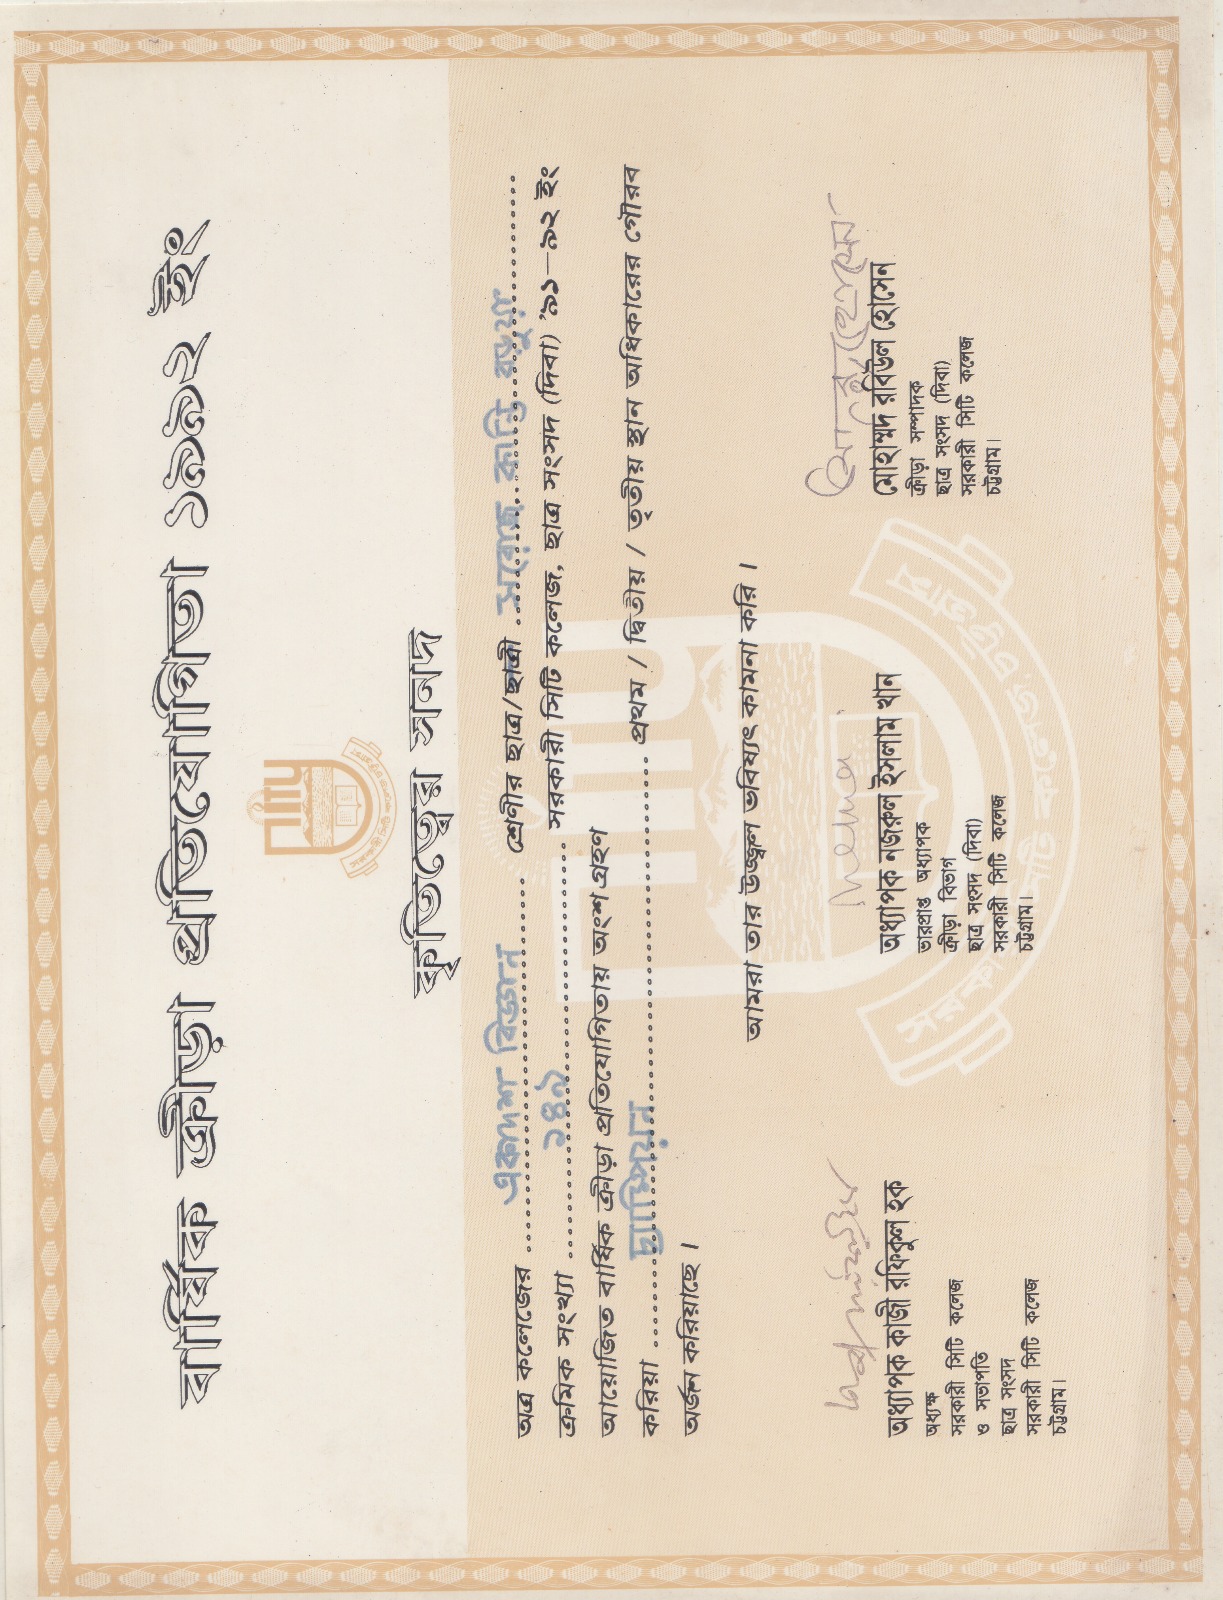 বার্ষিক ক্রীড়া প্রতিযোগিতা ১৯৯২ ইং
সিটি
সরকারী সিটি কলেজ চট্টগ্রাম
কৃতিত্বের সনদ
অত্র কলেজের একাদশ বিজ্ঞান শ্রেণীর ছাত্র/ছাত্রী সরোজ কান্তি বড়ুয়া
ক্রমিক সংখ্যা ১৪৯ সরকারী সিটি কলেজ, ছাত্র সংসদ (দিবা) '৯১–৯২ ইং
আয়োজিত বার্ষিক ক্রীড়া প্রতিযোগিতায় অংশ গ্রহণ
করিয়া চ্যাম্পিয়ন প্রথম / দ্বিতীয় / তৃতীয় স্থান অধিকারের গৌরব
অর্জন করিয়াছে ।
আমরা তার উজ্জ্বল ভবিষ্যৎ কামনা করি ।
অধ্যাপক কাজী রফিকুল হক
অধ্যক্ষ
সরকারী সিটি কলেজ
ও সভাপতি
ছাত্র সংসদ
সরকারী সিটি কলেজ
চট্টগ্রাম।
অধ্যাপক নজরুল ইসলাম খান
ভারপ্রাপ্ত অধ্যাপক
ক্রীড়া বিভাগ
ছাত্র সংসদ (দিবা)
সরকারী সিটি কলেজ
চট্টগ্রাম।
মোহাম্মদ রবিউল হোসেন
ক্রীড়া সম্পাদক
ছাত্র সংসদ (দিবা)
সরকারী সিটি কলেজ
চট্টগ্রাম।
সিটি
সরকারী সিটি কলেজ চট্টগ্রাম